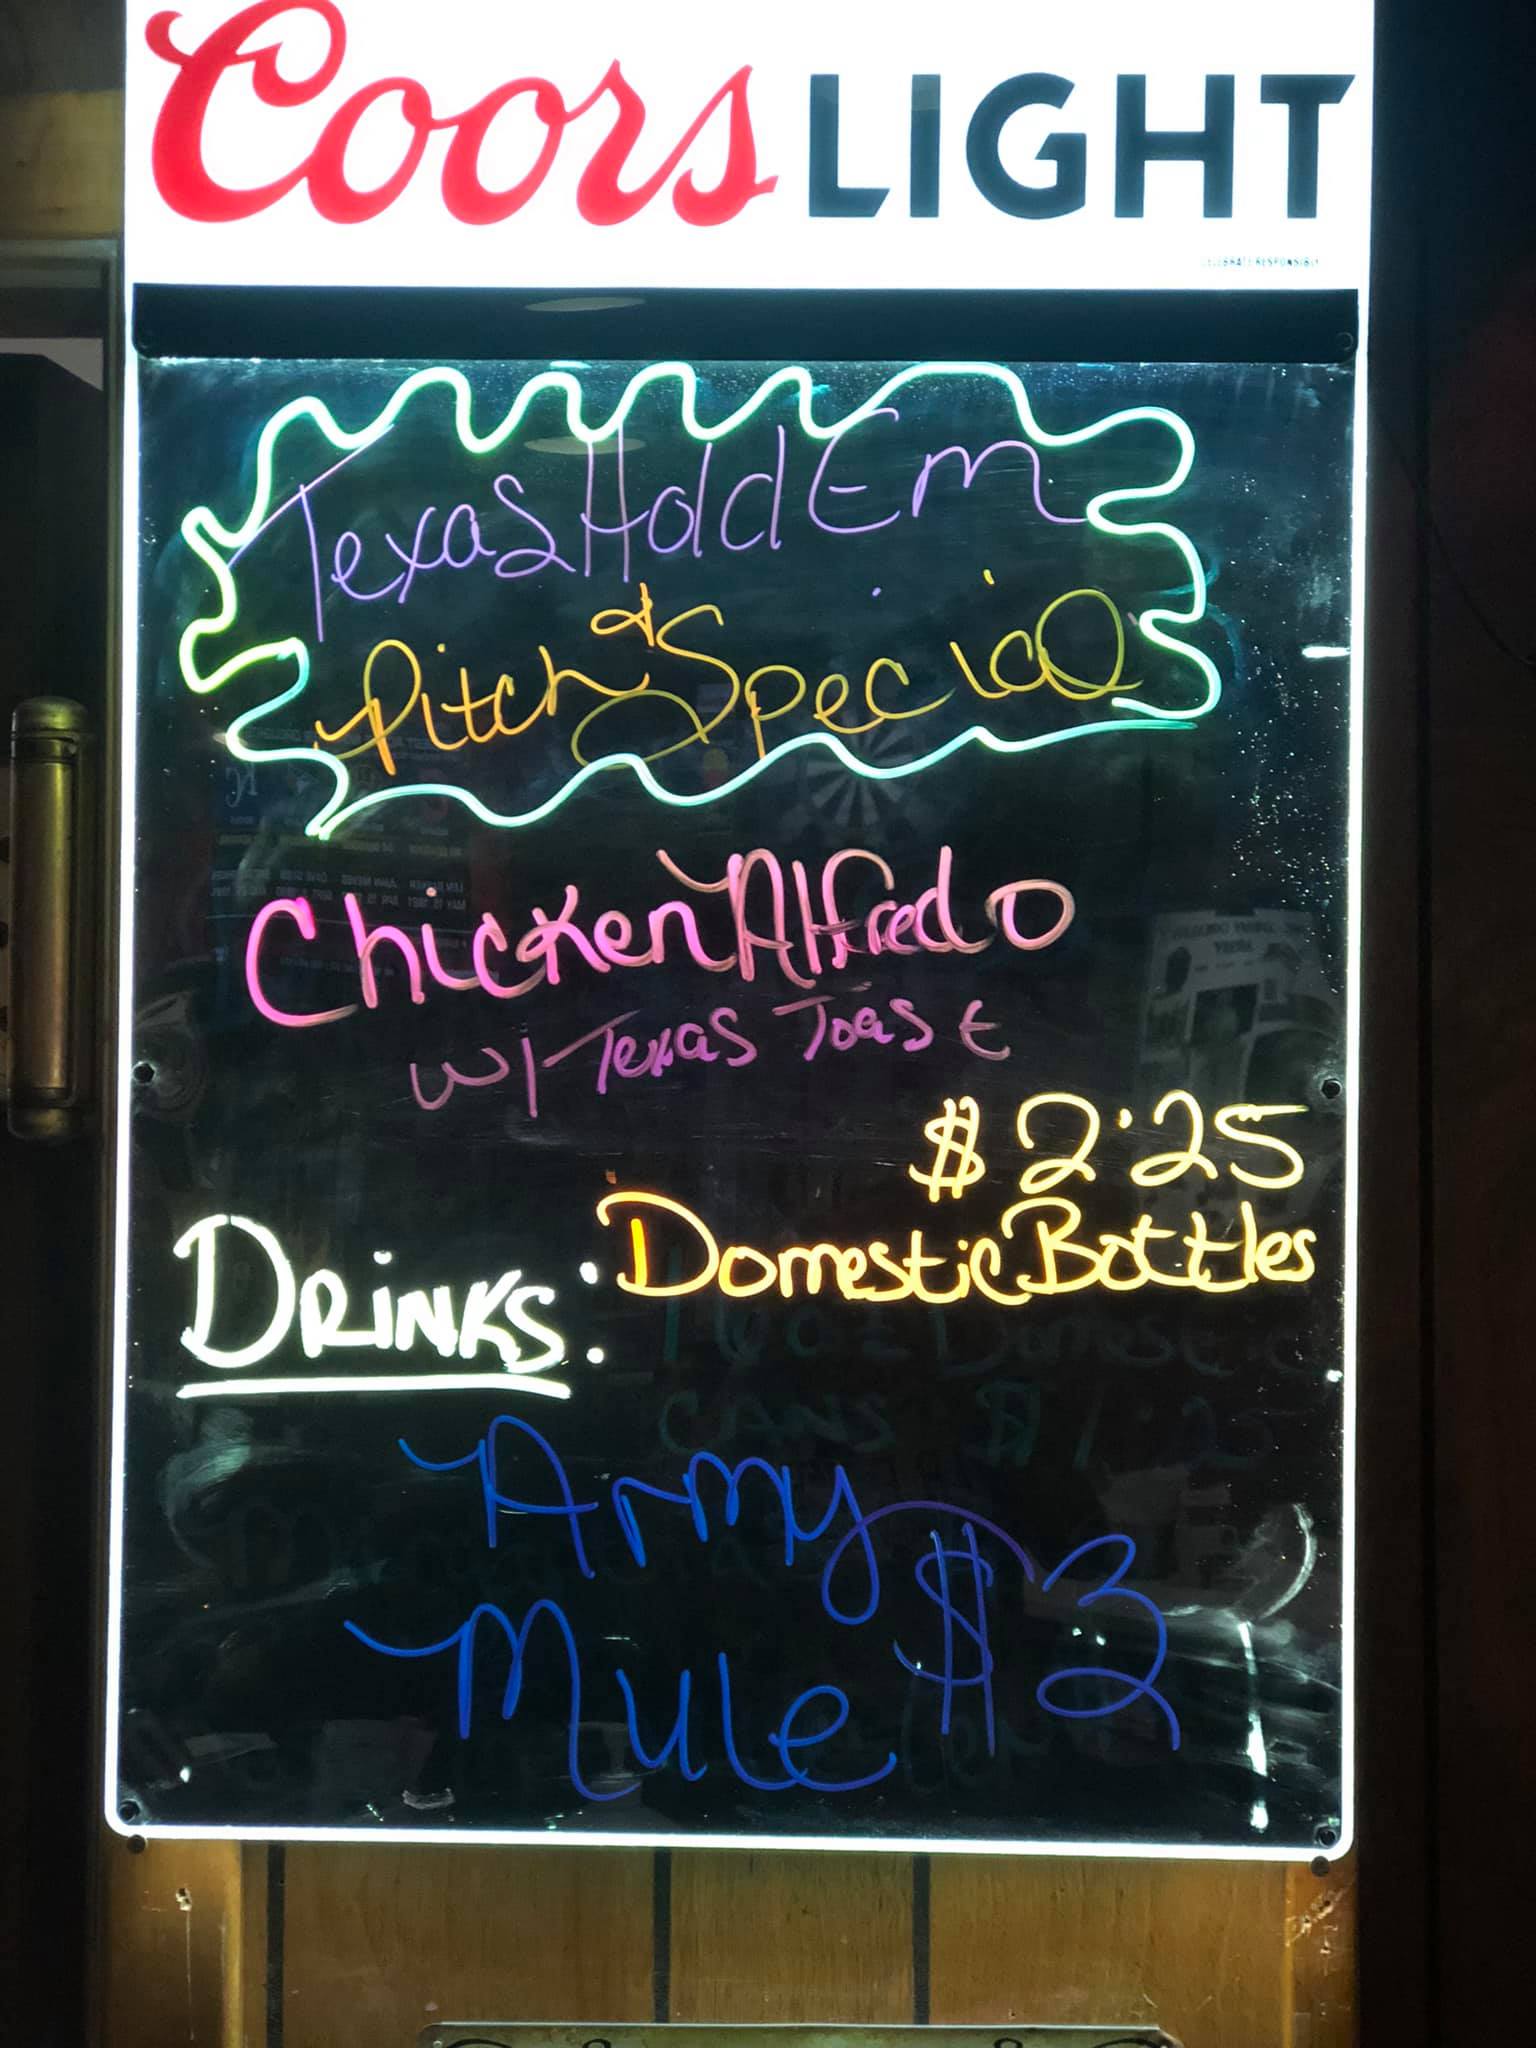 Coors LIGHT
CELEBRATE RESPONSIBLY
Texas Hold Em
& 
Pitch Special
Chicken Alfredo
w/ Texas Toast
$2.25
DRINKS: Domestic Bottles
16oz Domestic
CANS $1.25
Army
Mule $3